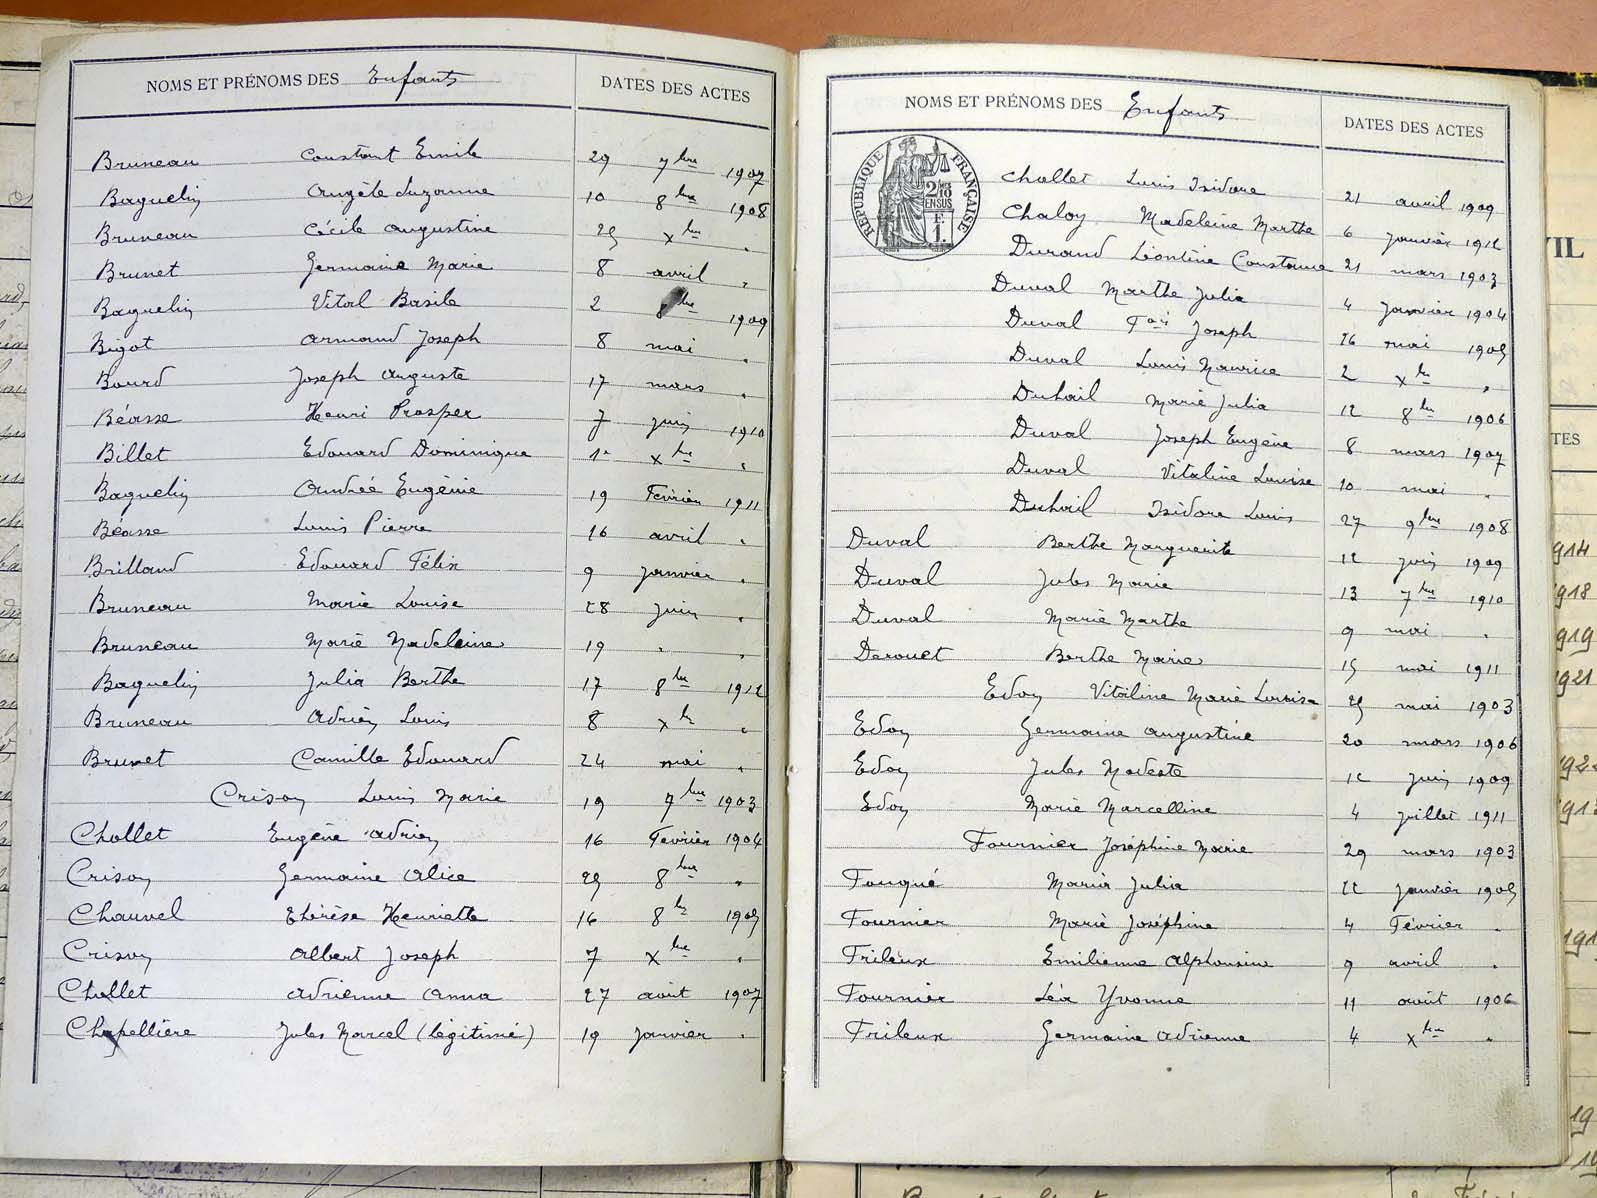 NOMS ET PRÉNOMS DES Enfants DATES DES ACTES
Bruneau Constant Emile 29 7bre 1907
Baguelin Angèle Suzanne 10 8bre 1908
Bruneau Cécile Augustine 25 Xbre "
Brunet Germaine Marie 8 avril "
Baguelin Vital Basile 2 8bre 1909
Bigot Armand Joseph 8 mai "
Bourd Joseph Auguste 17 mars "
Béasse Henri Prosper 7 juin 1910
Billet Edouard Dominique 1er Xbre "
Baguelin Andrée Eugénie 19 Février 1911
Béasse Louis Pierre 16 avril "
Brilland Edouard Félix 9 janvier "
Bruneau Marie Louise 28 juin "
Bruneau Marie Madeleine 19 " "
Baguelin Julia Berthe 17 8bre 1912
Bruneau Adrien Louis 8 Xbre "
Brunet Camille Edouard 24 mai "
Crison Louis Marie 19 7bre 1903
Chollet Eugène Adrien 16 Février 1904
Crison Germaine Alice 25 8bre "
Chauvel Thérèse Henriette 16 8bre 1905
Crison Albert Joseph 7 Xbre "
Chollet Adrienne Anna 27 août 1907
Chapellière Jules Marcel (légitimé) 19 janvier "
NOMS ET PRÉNOMS DES Enfants DATES DES ACTES
RÉPUBLIQUE FRANÇAISE
2/10 EN SUS
Chollet Louis Isidore 21 avril 1909
Chaloy Madeleine Marthe 6 janvier 1912
Durand Léontine Constance 21 mars 1903
Duval Marthe Julia 4 janvier 1904
Duval Fois Joseph 26 mai 1905
Duval Louis Maurice 2 Xbre "
Duhail Marie Julia 12 8bre 1906
Duval Joseph Eugène 8 mars 1907
Duval Vitaline Louise 10 mai "
Duhail Isidore Louis 27 9bre 1908
Duval Berthe Marguerite 12 juin 1909
Duval Jules Marie 13 7bre 1910
Duval Marie Marthe 9 mai "
Derouet Berthe Marie 15 mai 1911
Edon Vitaline Marie Louise 25 mai 1903
Edon Germaine Augustine 20 mars 1906
Edon Jules Modeste 12 juin 1909
Edon Marie Marcelline 4 juillet 1911
Fournier Joséphine Marie 29 mars 1903
Fouqué Maria Julia 22 janvier 1905
Fournier Marie Joséphine 4 Février "
Frileux Emilienne Alphonsine 9 avril "
Fournier Léa Yvonne 11 août 1906
Frileux Germaine Adrienne 4 Xbre "
VIL
TES
914
918
919
1921